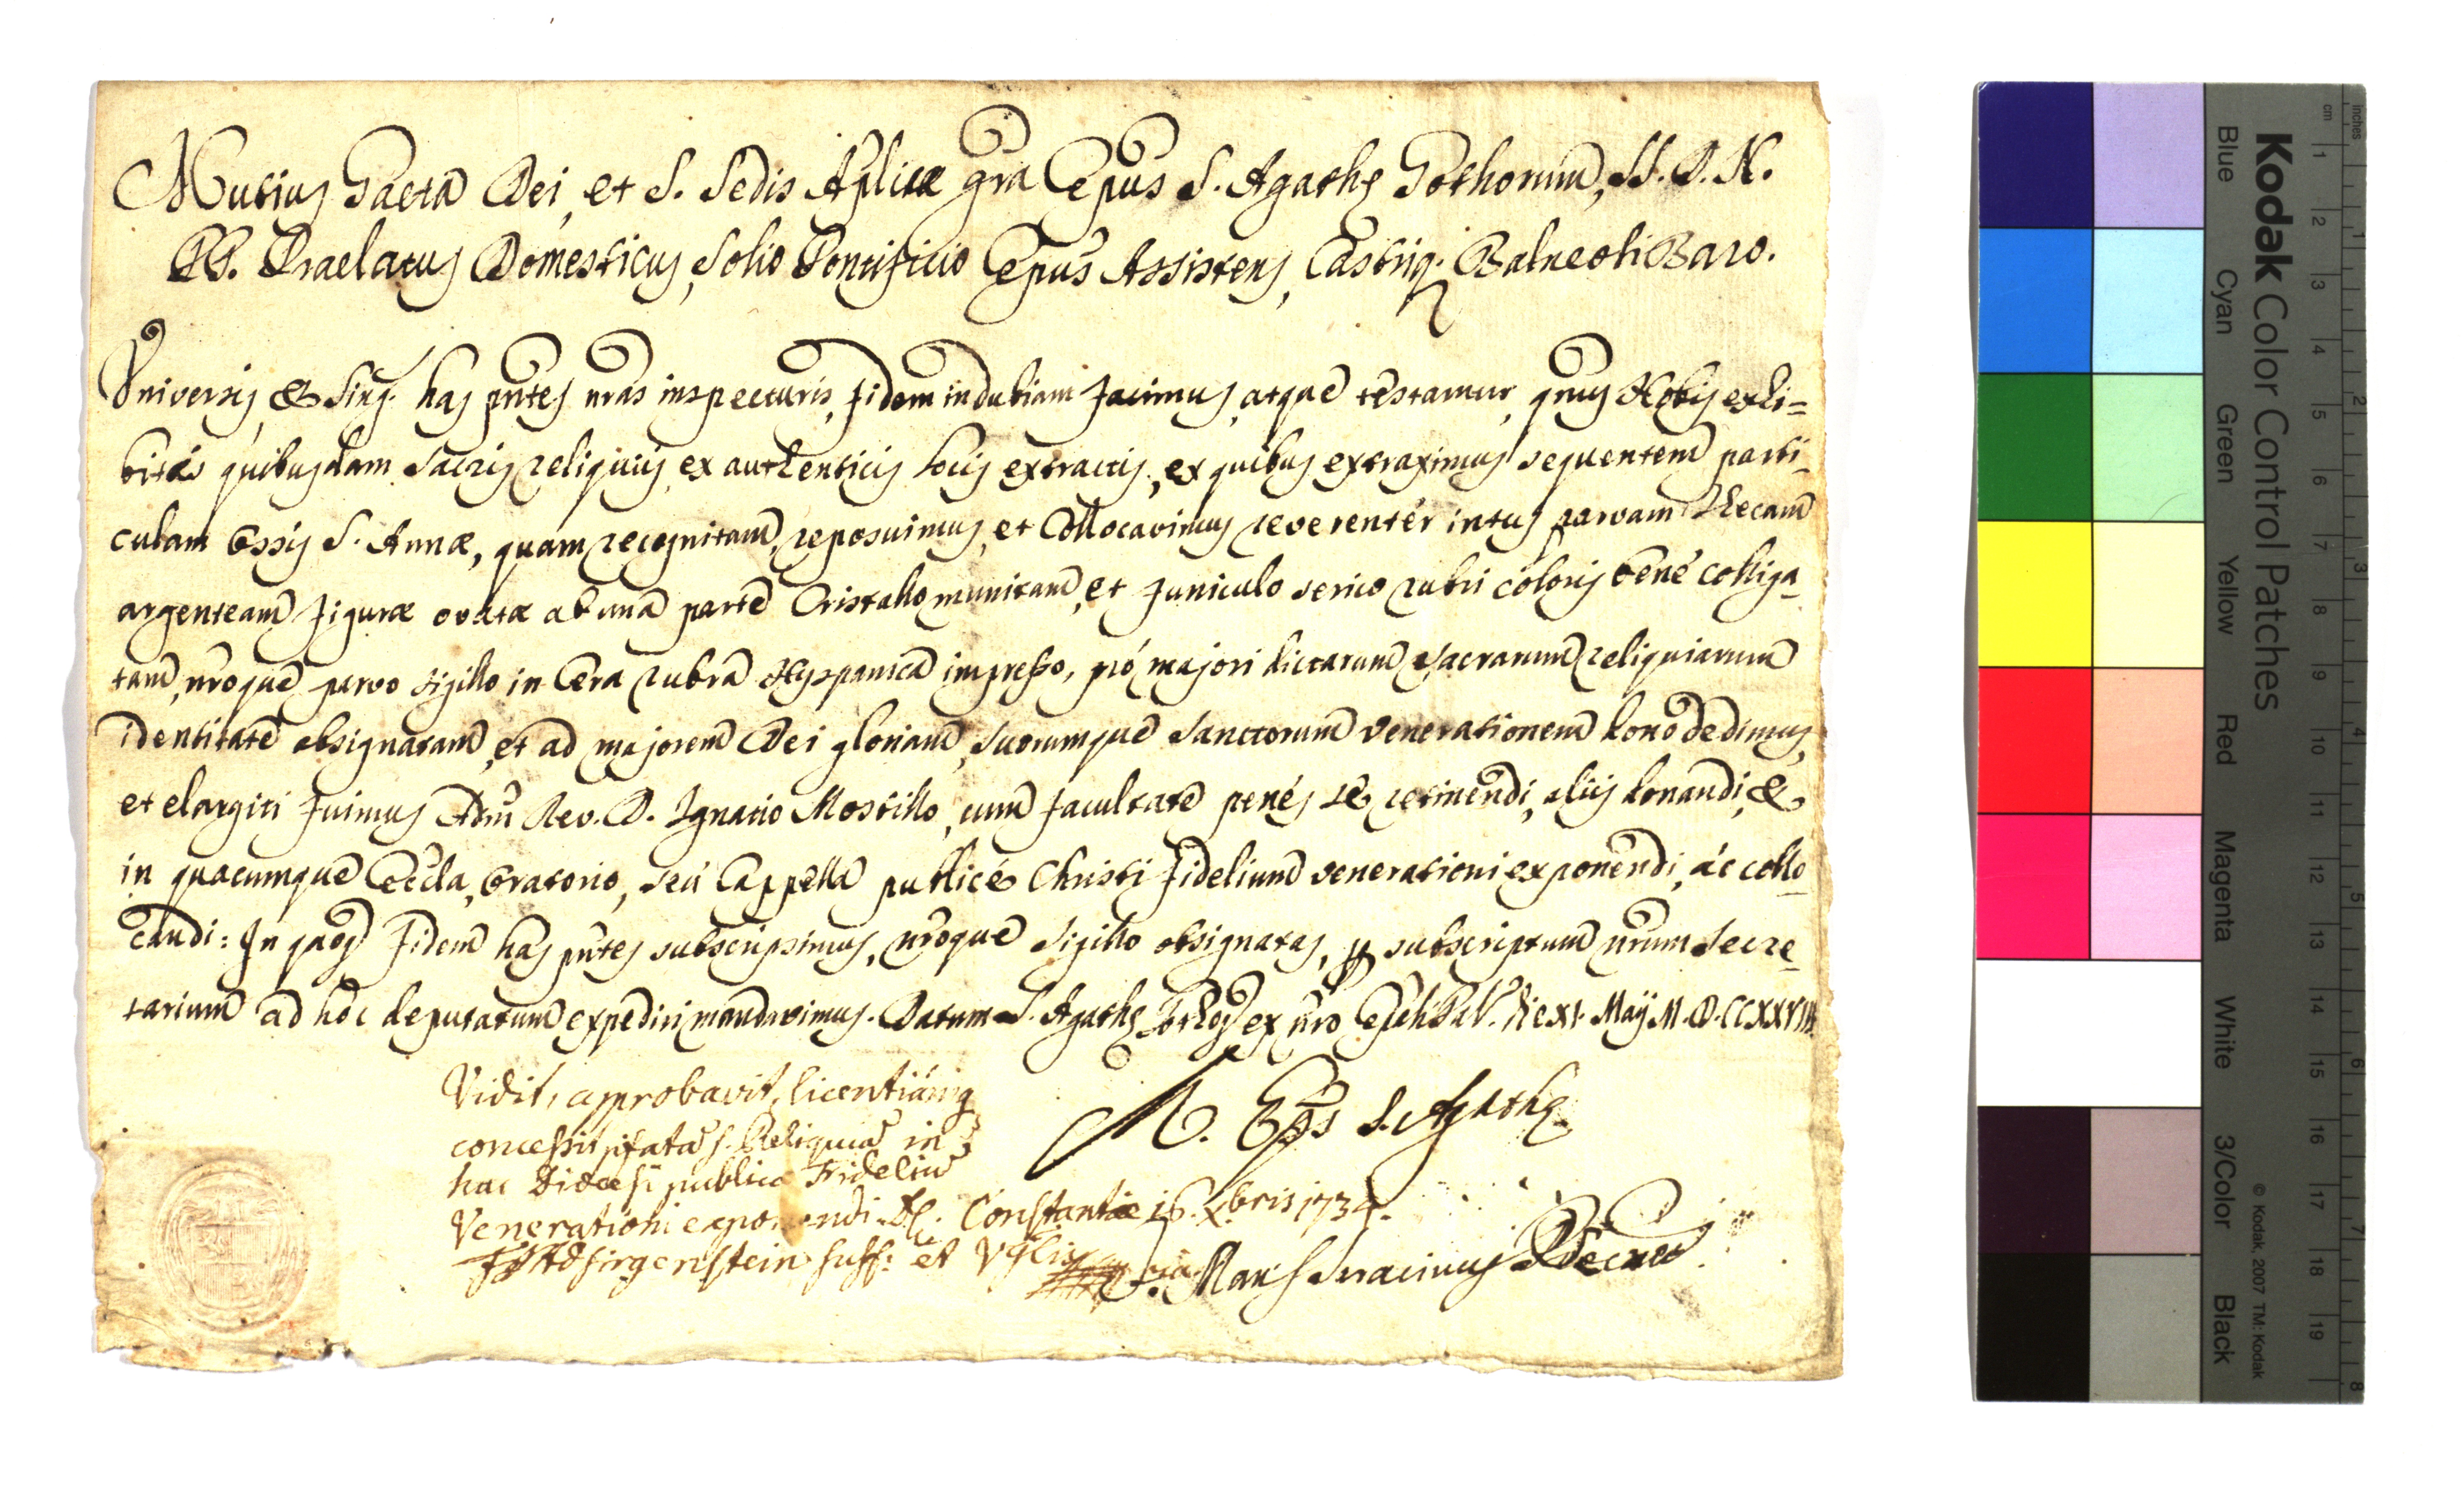 Mutius Gaeta Dei, et S. Sedis Aplicæ grã Epus S. Agathę Gothorum, SS. D. N.
PP. Praelatus Domesticus, Solio Pontificio Epus Assistens, Castriq. Balneoli Baro.
Universis, & Sing. has pñtes nr̃as inspecturis, fidem indubiam facimus, atque testamur, qnus Nobis exhi=
bitis quibusdam sacris reliquiis, ex authenticis locis extractis, ex quibus extraximus sequentem parti-
culam Ossis S. Annæ, quam recognitam, reposuimus, et Collocavimus reverentèr intus parvam thecam
argenteam figuræ ovatæ ab una parte Cristallo munitam, et funiculo serico rubri coloris benè colliga-
tam, nr̃oque parvo sigillo in Cera rubra Hyspanica impresso, prò majori dictarum sacrarum reliquiarum
identitate obsignatam, et ad majorem Dei gloriam, suorumque Sanctorum venerationem dono dedimus,
et elargiti fuimus Adm̃ Rev. D. Ignatio Mostillo, cum facultate penès se retinendi, aliis donandi, &
in quacumque Eccla, Oratorio, seù Cappella publicè Christi fidelium venerationi exponendi, ác collo-
candi: In quoꝝ fidem has pñtes subscripsimus, nr̃oque sigillo obsignatas, ꝑ subscriptum nr̃um Secre-
tarium ad hóc deputatum expediri mandavimus. Datum S. Agathę Gothoꝝ ex nr̃o Epali Pal. die XI. Maij M.D.CCXXVIII
Vidit, approbavit, licentiamq
concessit pfatã S. Reliquiã in
hac Diœcesi publicæ Fideliũ
Venerationi exponendi. Dt. Constantiæ 16. Xbris 1734.
M. Eps S. Agathę
FJA d Sirgenstein suff: et Vglis
D. Mari Serracinus Secr̃ius
Kodak Color Control Patches
© Kodak, 2007 TM: Kodak
Blue
Cyan
Green
Yellow
Red
Magenta
White
3/Color
Black
cm
1 2 3 4 5 6 7 8 9 10 11 12 13 14 15 16 17 18 19
inches
1 2 3 4 5 6 7 8